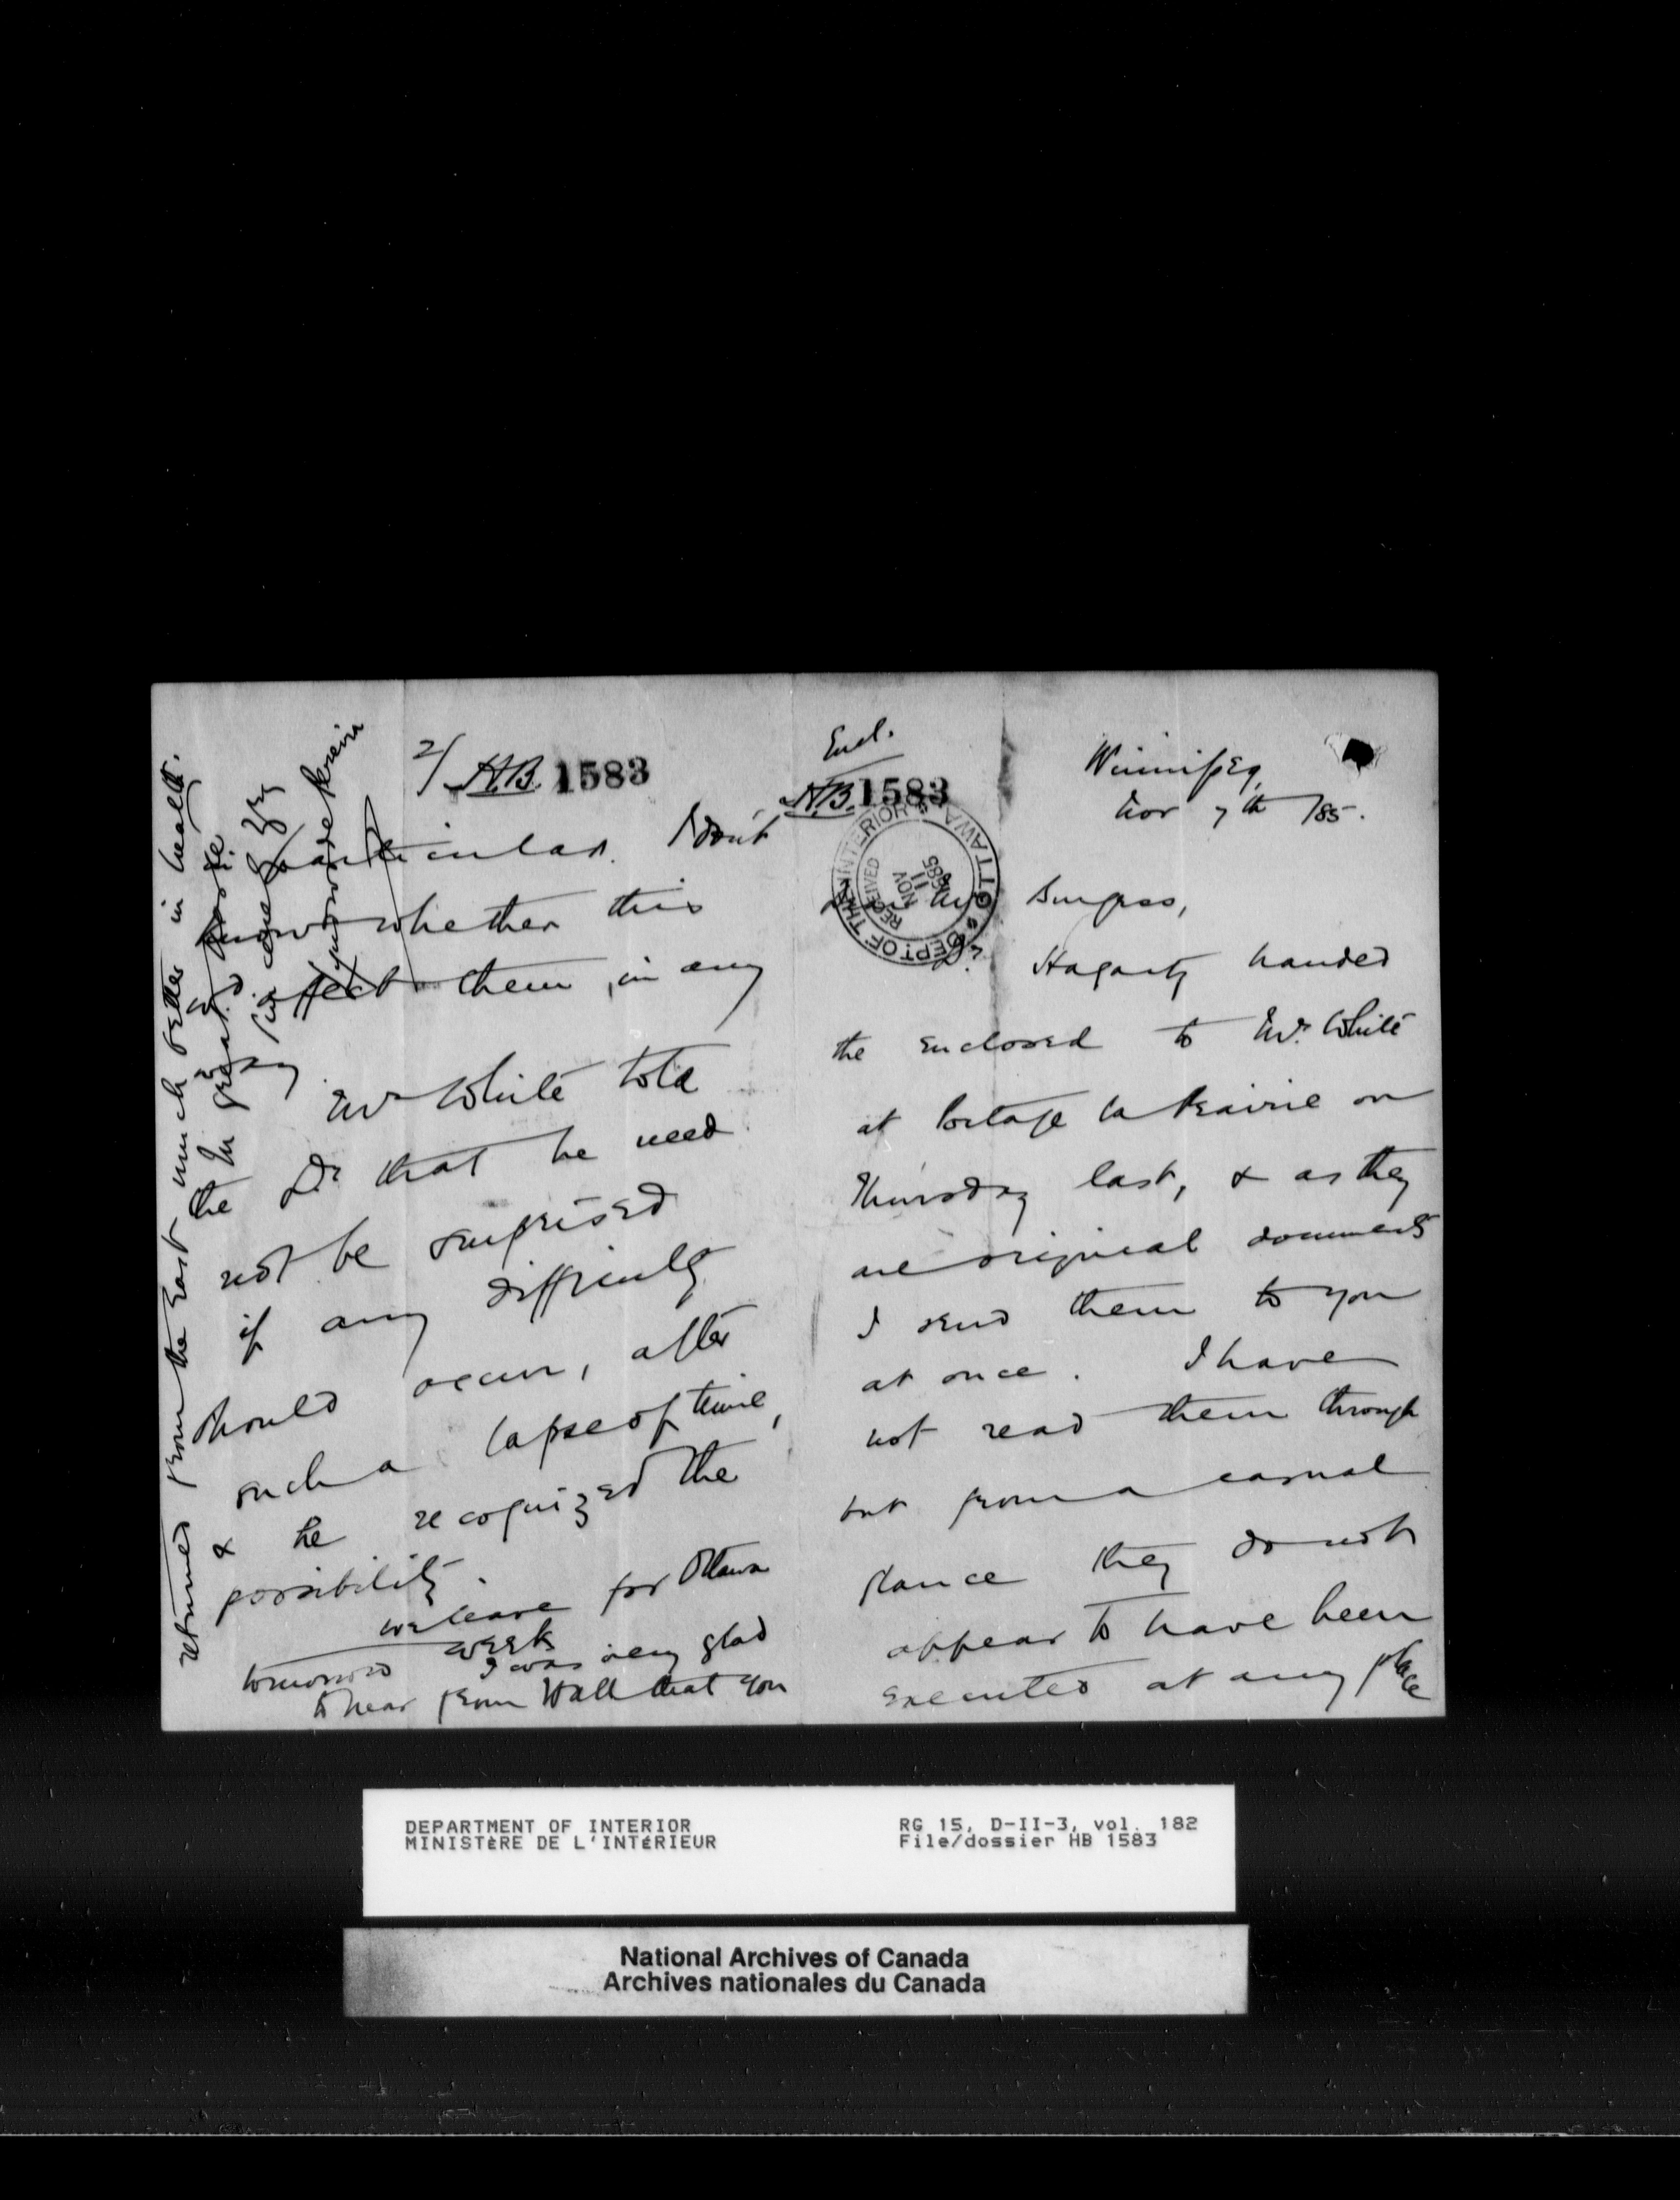 Encl.
H.B. 1583
Winnipeg,
Nov 7th /85.
DEPT. OF THE INTERIOR OTTAWA
RECEIVED
NOV
11
1885
Burgess,
Dr. Hagarty handed
the enclosed to Mr. White
at Portage la Prairie on
Thursday last, & as they
are original documents
I send them to you
at once. I have
not read them through
but from a casual
glance they do not
appear to have been
executed at any place
2/ H.B. 1583
particular. I don't
know whether this
affect them, in any
way
Mr White told
the Dr that he need
not be surprised
if any difficulty
should occur, after
such a lapse of time,
& he recognized the
possibility.
We leave for Ottawa
tomorrow week
I was very glad
to hear from Hall that you
returned from the East much better in health.
DEPARTMENT OF INTERIOR
MINISTÈRE DE L'INTÉRIEUR
RG 15, D-II-3, vol. 182
File/dossier HB 1583
National Archives of Canada
Archives nationales du Canada